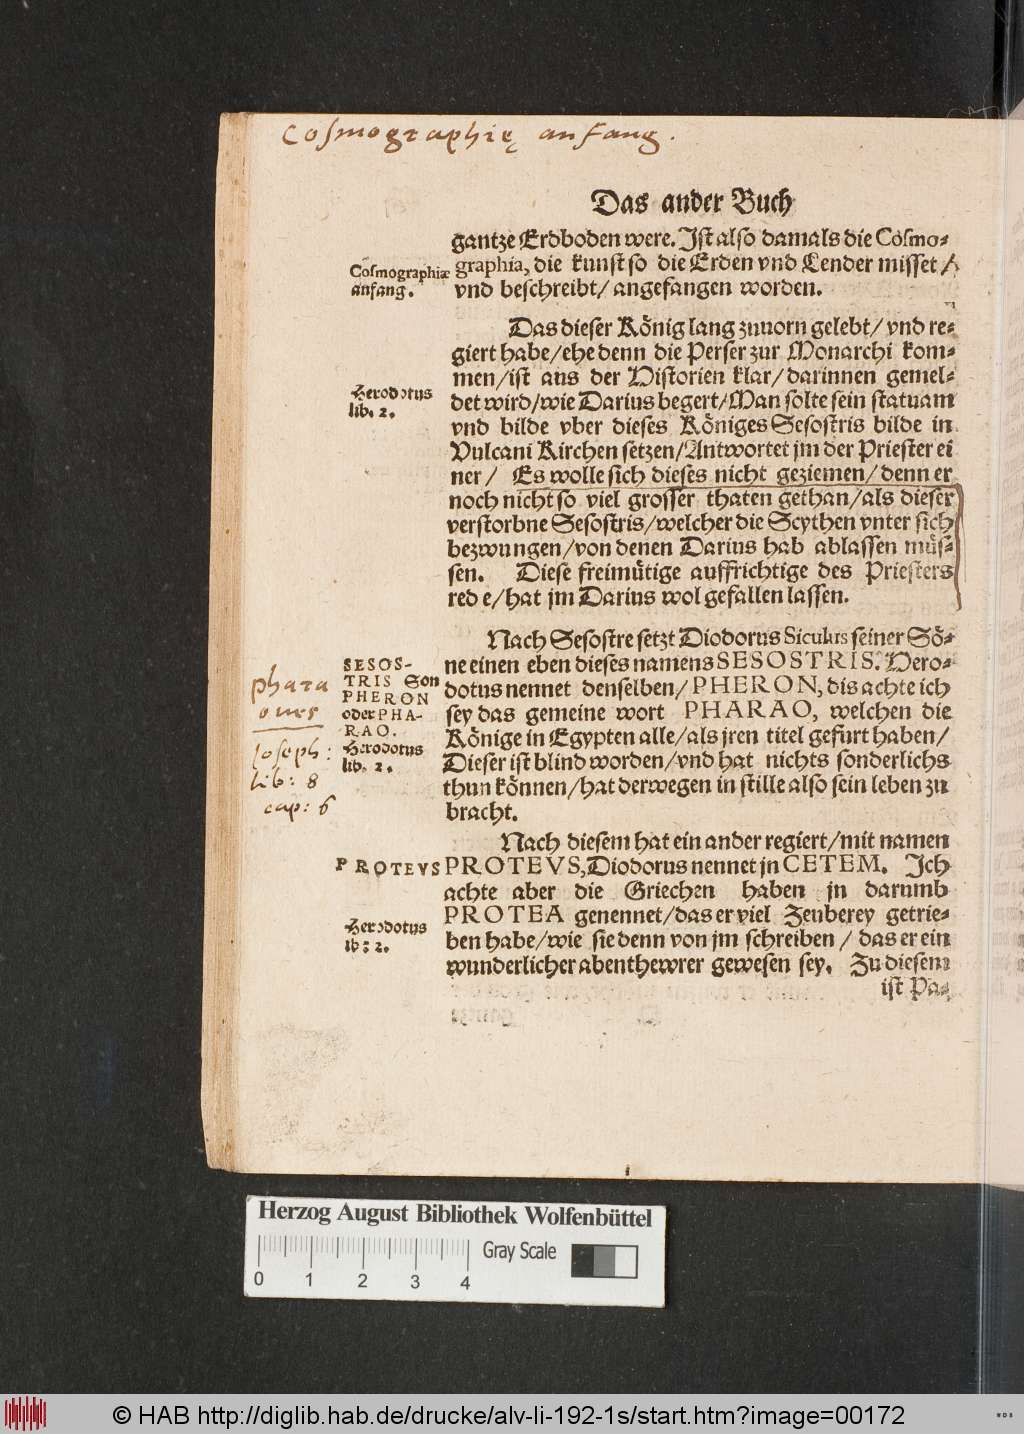 Cosmographię anfang.
Das ander Buch
gantze Erdboden were. Jst also damals die Cosmo-
graphia, die kunst so die Erden vnd Lender misset/
vnd beschreibt/ angefangen worden.
Cosmographiæ
anfang.
Das dieser König lang zuuorn gelebt/ vnd re-
giert habe/ehe denn die Perser zur Monarchi kom-
men/ist aus der Historien klar/darinnen gemel-
det wird/wie Darius begert/Man solte sein statuam
vnd bilde vber dieses Königes Sesostris bilde in
Vulcani Kirchen setzen/Antwortet jm der Priester ei
ner/ Es wolle sich dieses nicht geziemen/denn er
noch nicht so viel grosser thaten gethan/als dieser
verstorbne Sesostris/welcher die Scythen vnter sich
bezwungen/von denen Darius hab ablassen müs-
sen. Diese freimütige auffrichtige des Priesters
rede/hat jm Darius wol gefallen lassen.
Herodotus
lib. 2.
Nach Sesostre setzt Diodorus Siculus seiner Sö-
ne einen eben dieses namens SESOSTRIS. Hero-
dotus nennet denselben/PHERON, dis achte ich
sey das gemeine wort PHARAO, welchen die
Könige in Egypten alle/als jren titel gefurt haben/
Dieser ist blind worden/vnd hat nichts sonderlichs
thun können/hat derwegen in stille also sein leben zu
bracht.
SESOS-
TRIS Son
PHERON
oder PHA-
RAO.
Herodotus
lib. 2.
phara
ones
Joseph:
lib: 8
cap: 6
Nach diesem hat ein ander regiert/mit namen
PROTEVS, Diodorus nennet jn CETEM. Jch
achte aber die Griechen haben jn darumb
PROTEA genennet/das er viel Zeuberey getrie-
ben habe/wie sie denn von jm schreiben/das er ein
wunderlicher abenthewrer gewesen sey. Zu diesem
ist Pa-
PROTEVS
Herodotus
lib: 2.
Herzog August Bibliothek Wolfenbüttel
0 1 2 3 4
Gray Scale
© HAB http://diglib.hab.de/drucke/alv-li-192-1s/start.htm?image=00172